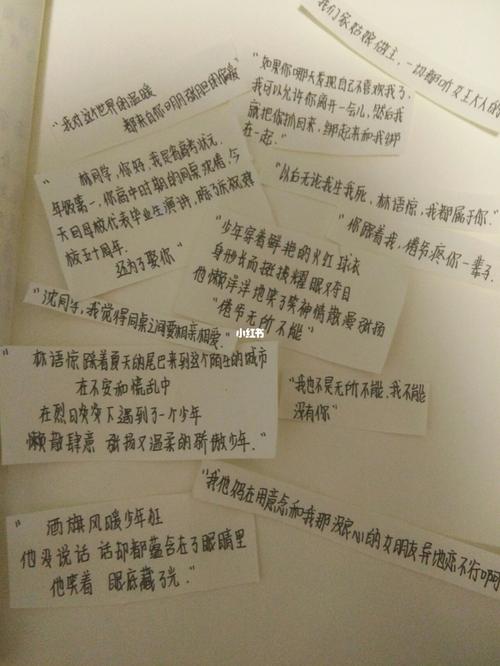 我们家姑娘做主，一切都听女王大人的
"如果你哪天发现自己不喜欢我了，
我可以允许你离开一会儿，然后我
就把你抓回来，绑起来和我绑
在一起。"
"我对这世界的温暖
都来自你明目张胆的偏爱"
"林同学，你好，我是省高考状元，
年级第一，你高中时期的同桌沈倦，今
天回母校代表毕业生演讲，除了庆祝建
校五十周年，
还为了娶你"
"以后无论我生我死，林语惊，我都属于你。"
"你跟着我，倦爷疼你一辈子"
"少年穿着鲜艳的火红球衣
身形长而挺拔耀眼夺目
他懒洋洋地笑了笑神情散漫张扬
"倦爷无所不能"
"沈同学，我觉得同桌之间要相亲相爱。"
小红书
"林语惊踩着夏天的尾巴来到这个陌生的城市
在不安和慌乱中
在烈日炎炎下遇到了一个少年
懒散肆意 张扬又温柔的骄傲少年。"
"我也不是无所不能，我不能
没有你"
"我他妈在用意念和我那没良心的女朋友异地恋不行啊
"酒旗风暖少年狂
他没说话 话却都蕴含在了眼睛里
他笑着 眼底藏了光。"